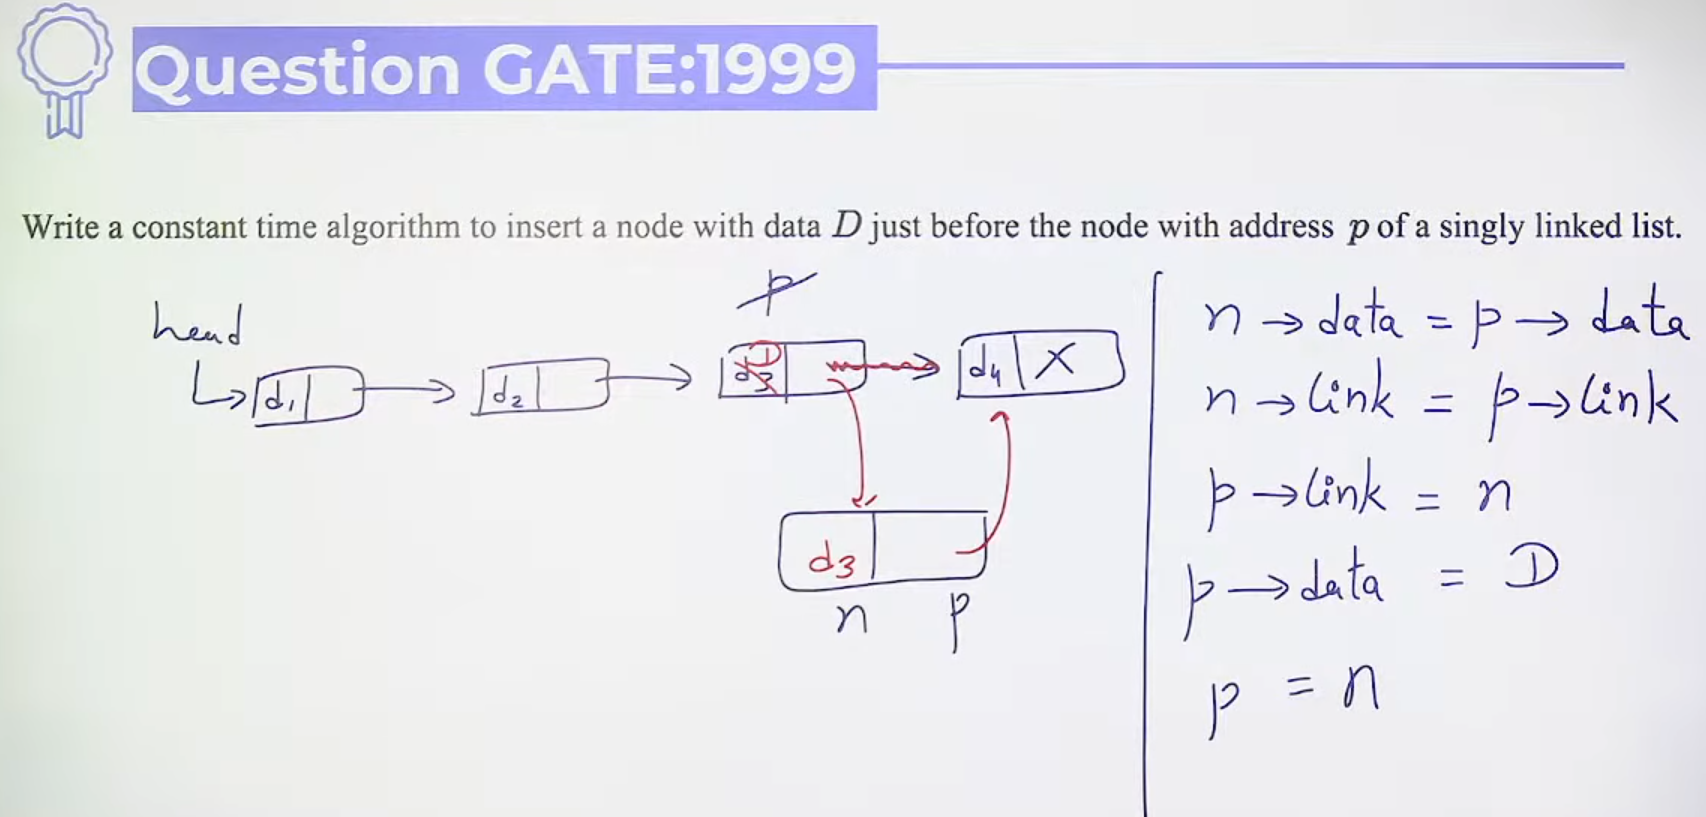 Question GATE:1999
Write a constant time algorithm to insert a node with data D just before the node with address p of a singly linked list.
head
p
d1
d2
d3 D
d4 X
d3
n p
n → data = p → data
n → link = p → link
p → link = n
p → data = D
p = n